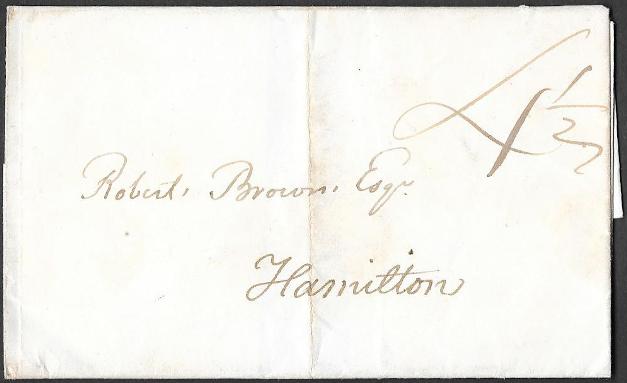 4 1/2
Robert Brown, Esqr
Hamilton